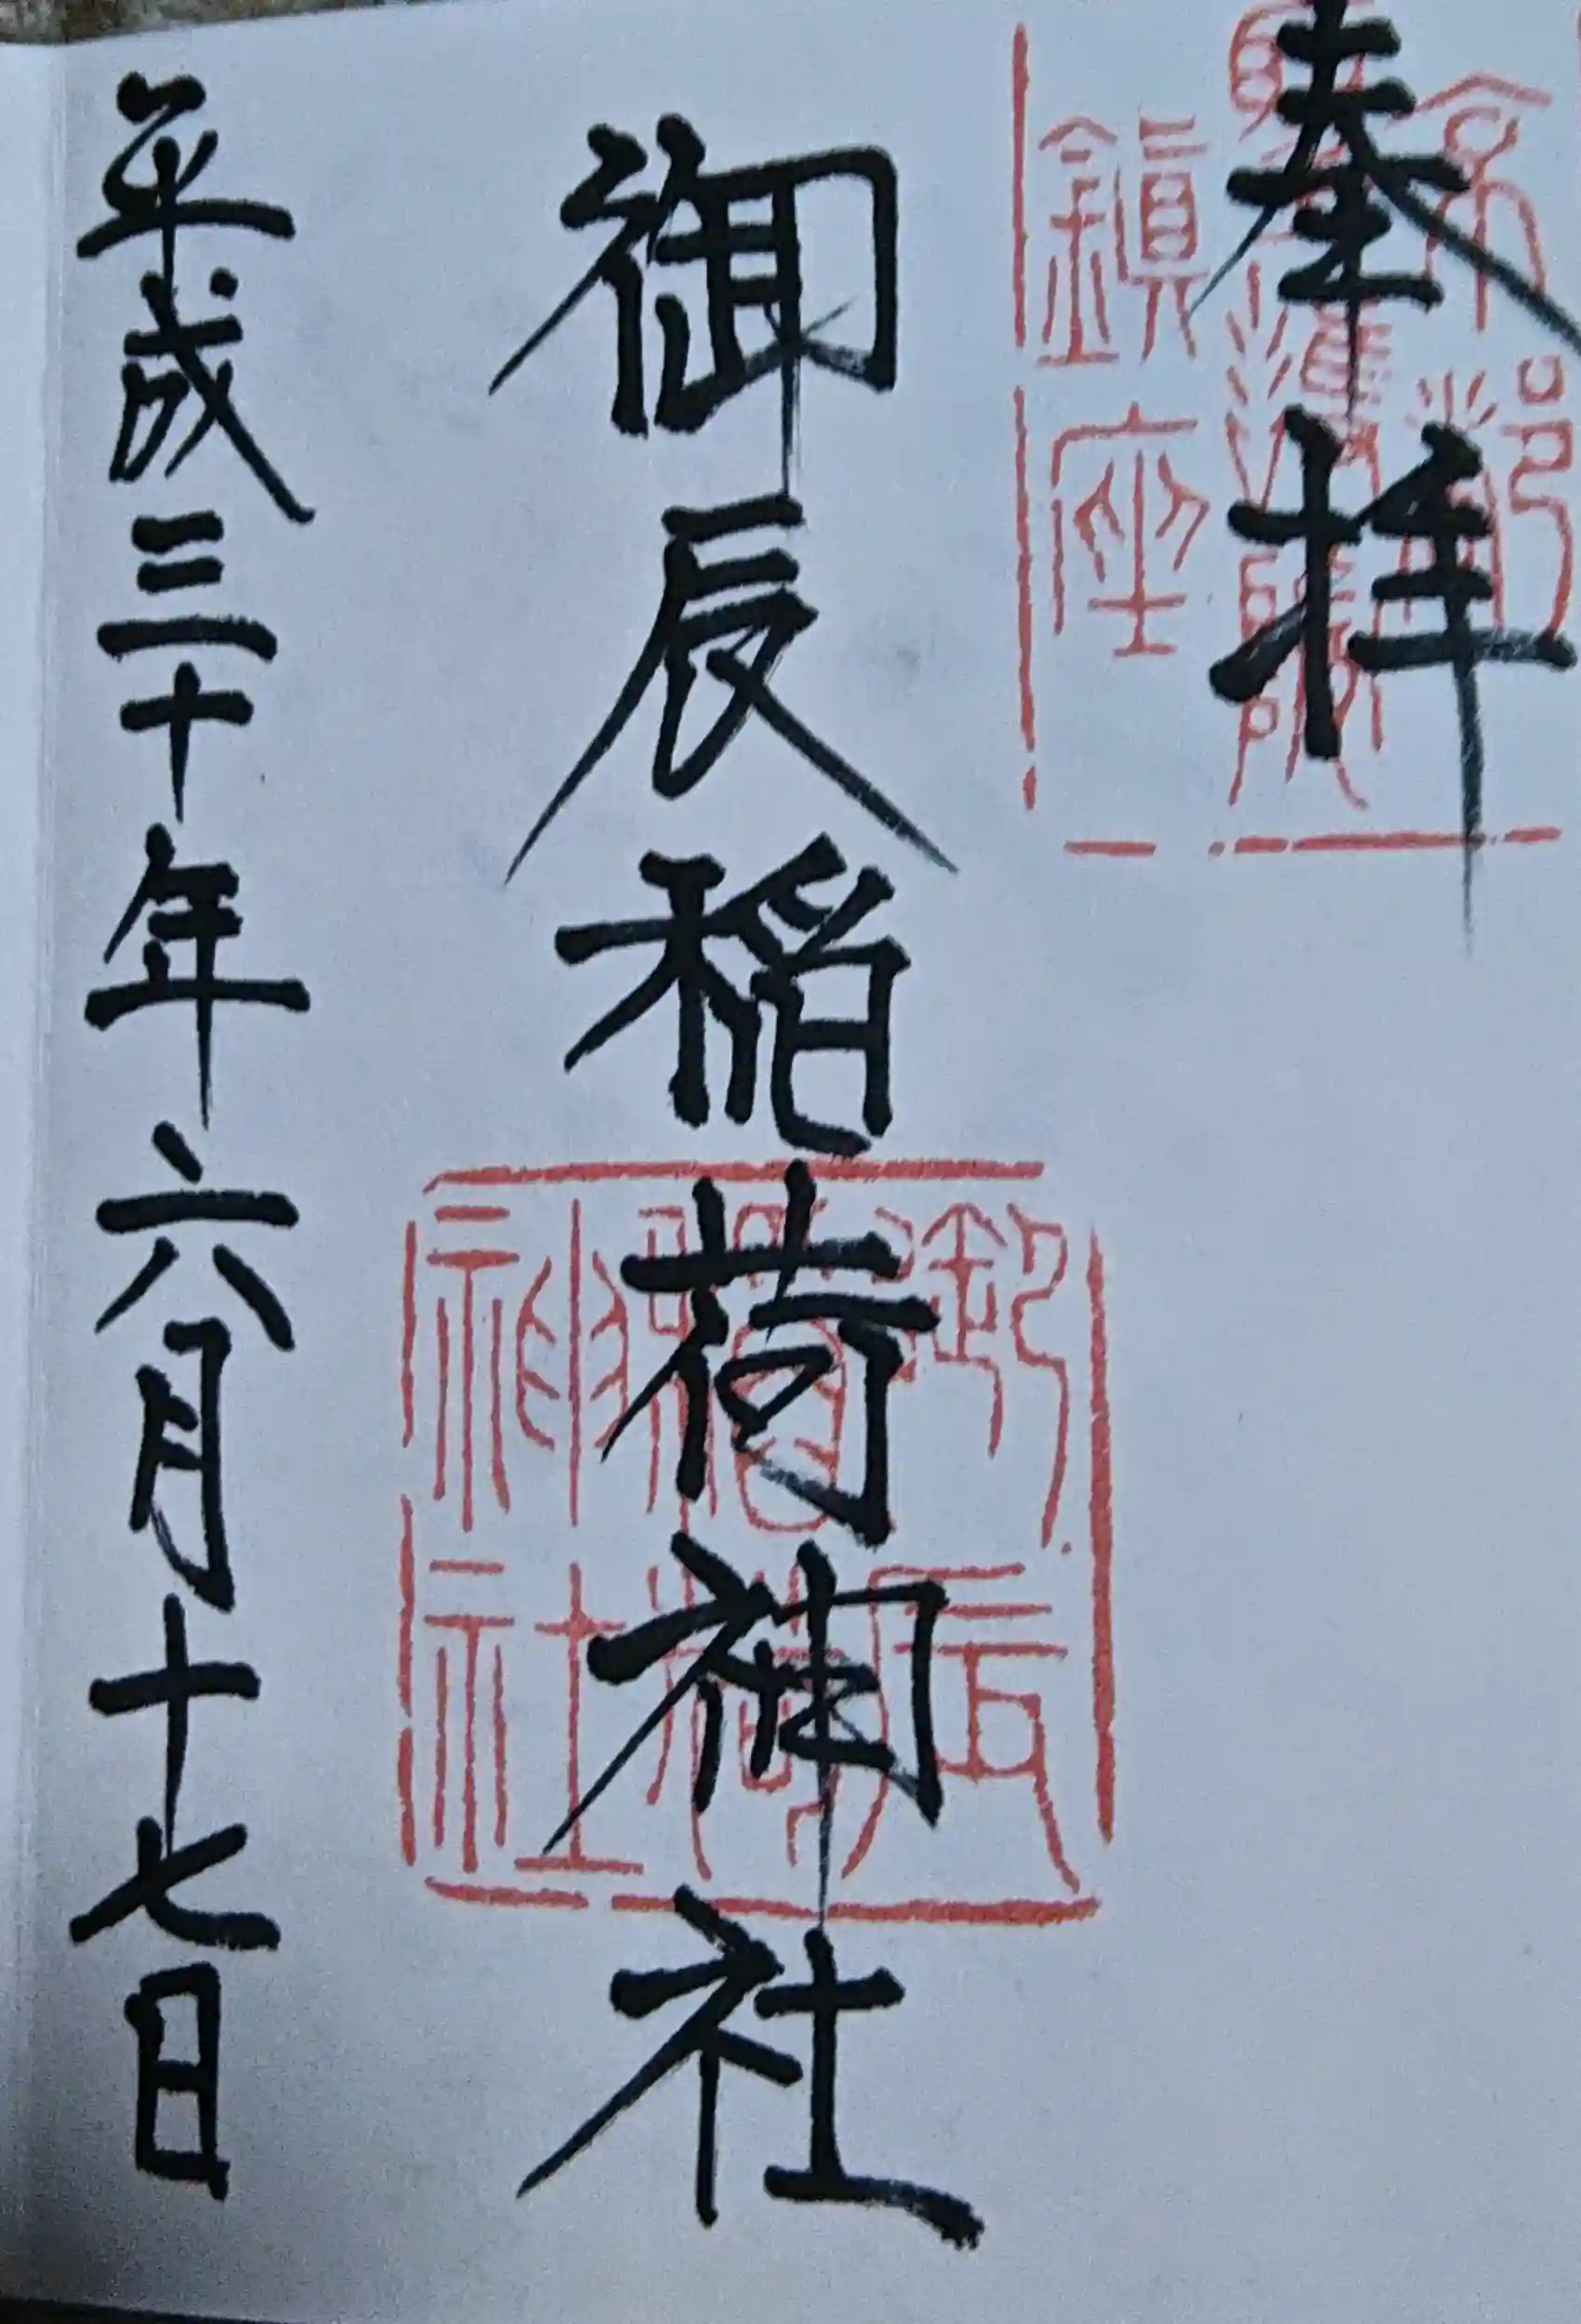 奉拝
鎮座
御辰稲荷神社
御辰
稲荷
神社
平成三十年六月十七日